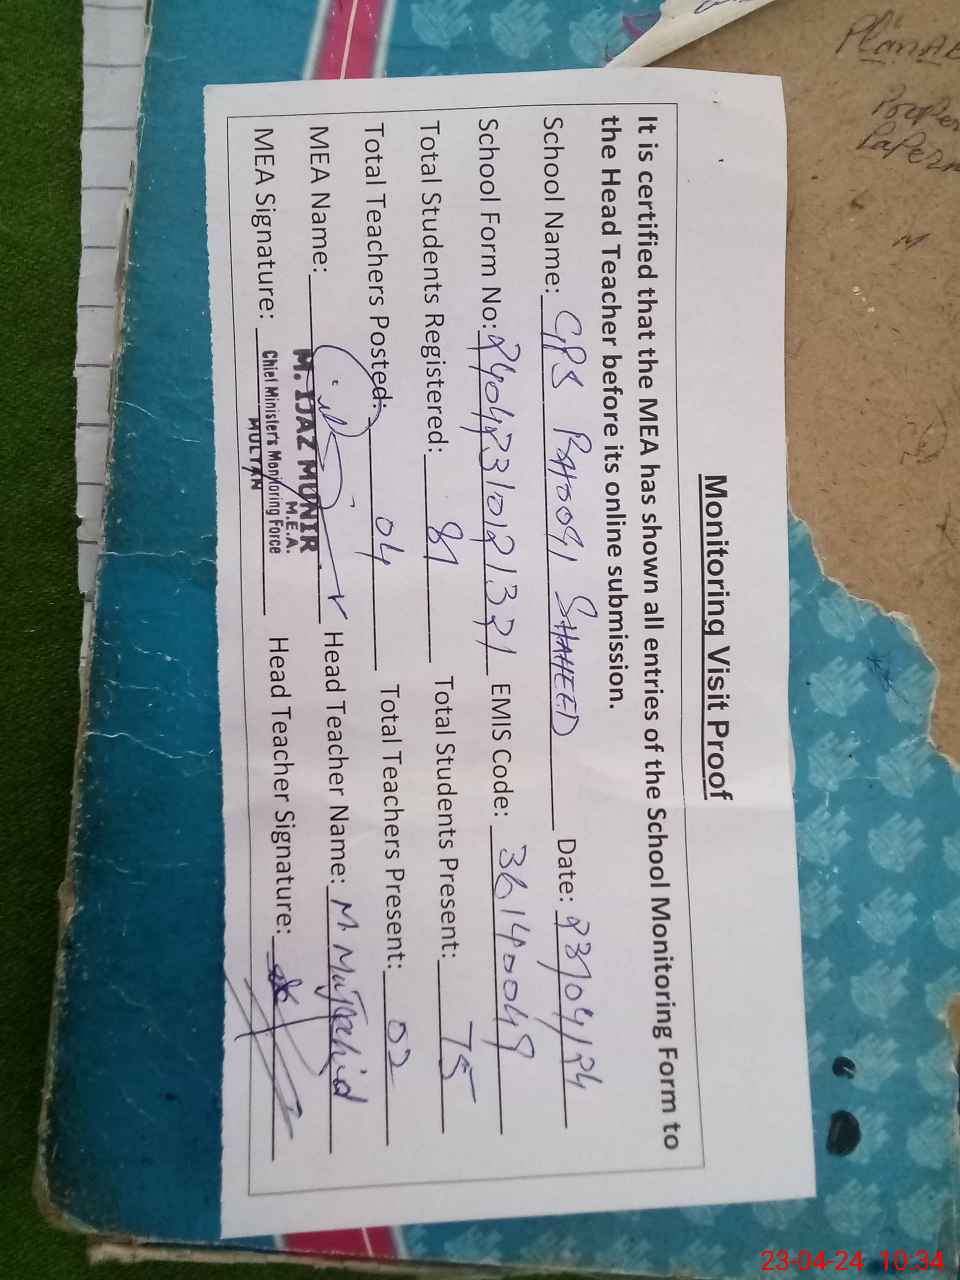 Monitoring Visit Proof
It is certified that the MEA has shown all entries of the School Monitoring Form to
the Head Teacher before its online submission.
School Name: GPS SHAHEED Date: 23/04/24
School Form No: EMIS Code: 36140049
Total Students Registered: 81 Total Students Present: 75
Total Teachers Posted: 04 Total Teachers Present: 02
MEA Name: Head Teacher Name: M. Mujaahid
M. IJAZ MUNIR
M.E.A.
MEA Signature: Head Teacher Signature:
Chief Minister's Monitoring Force
MULTAN
23-04-24 10:34